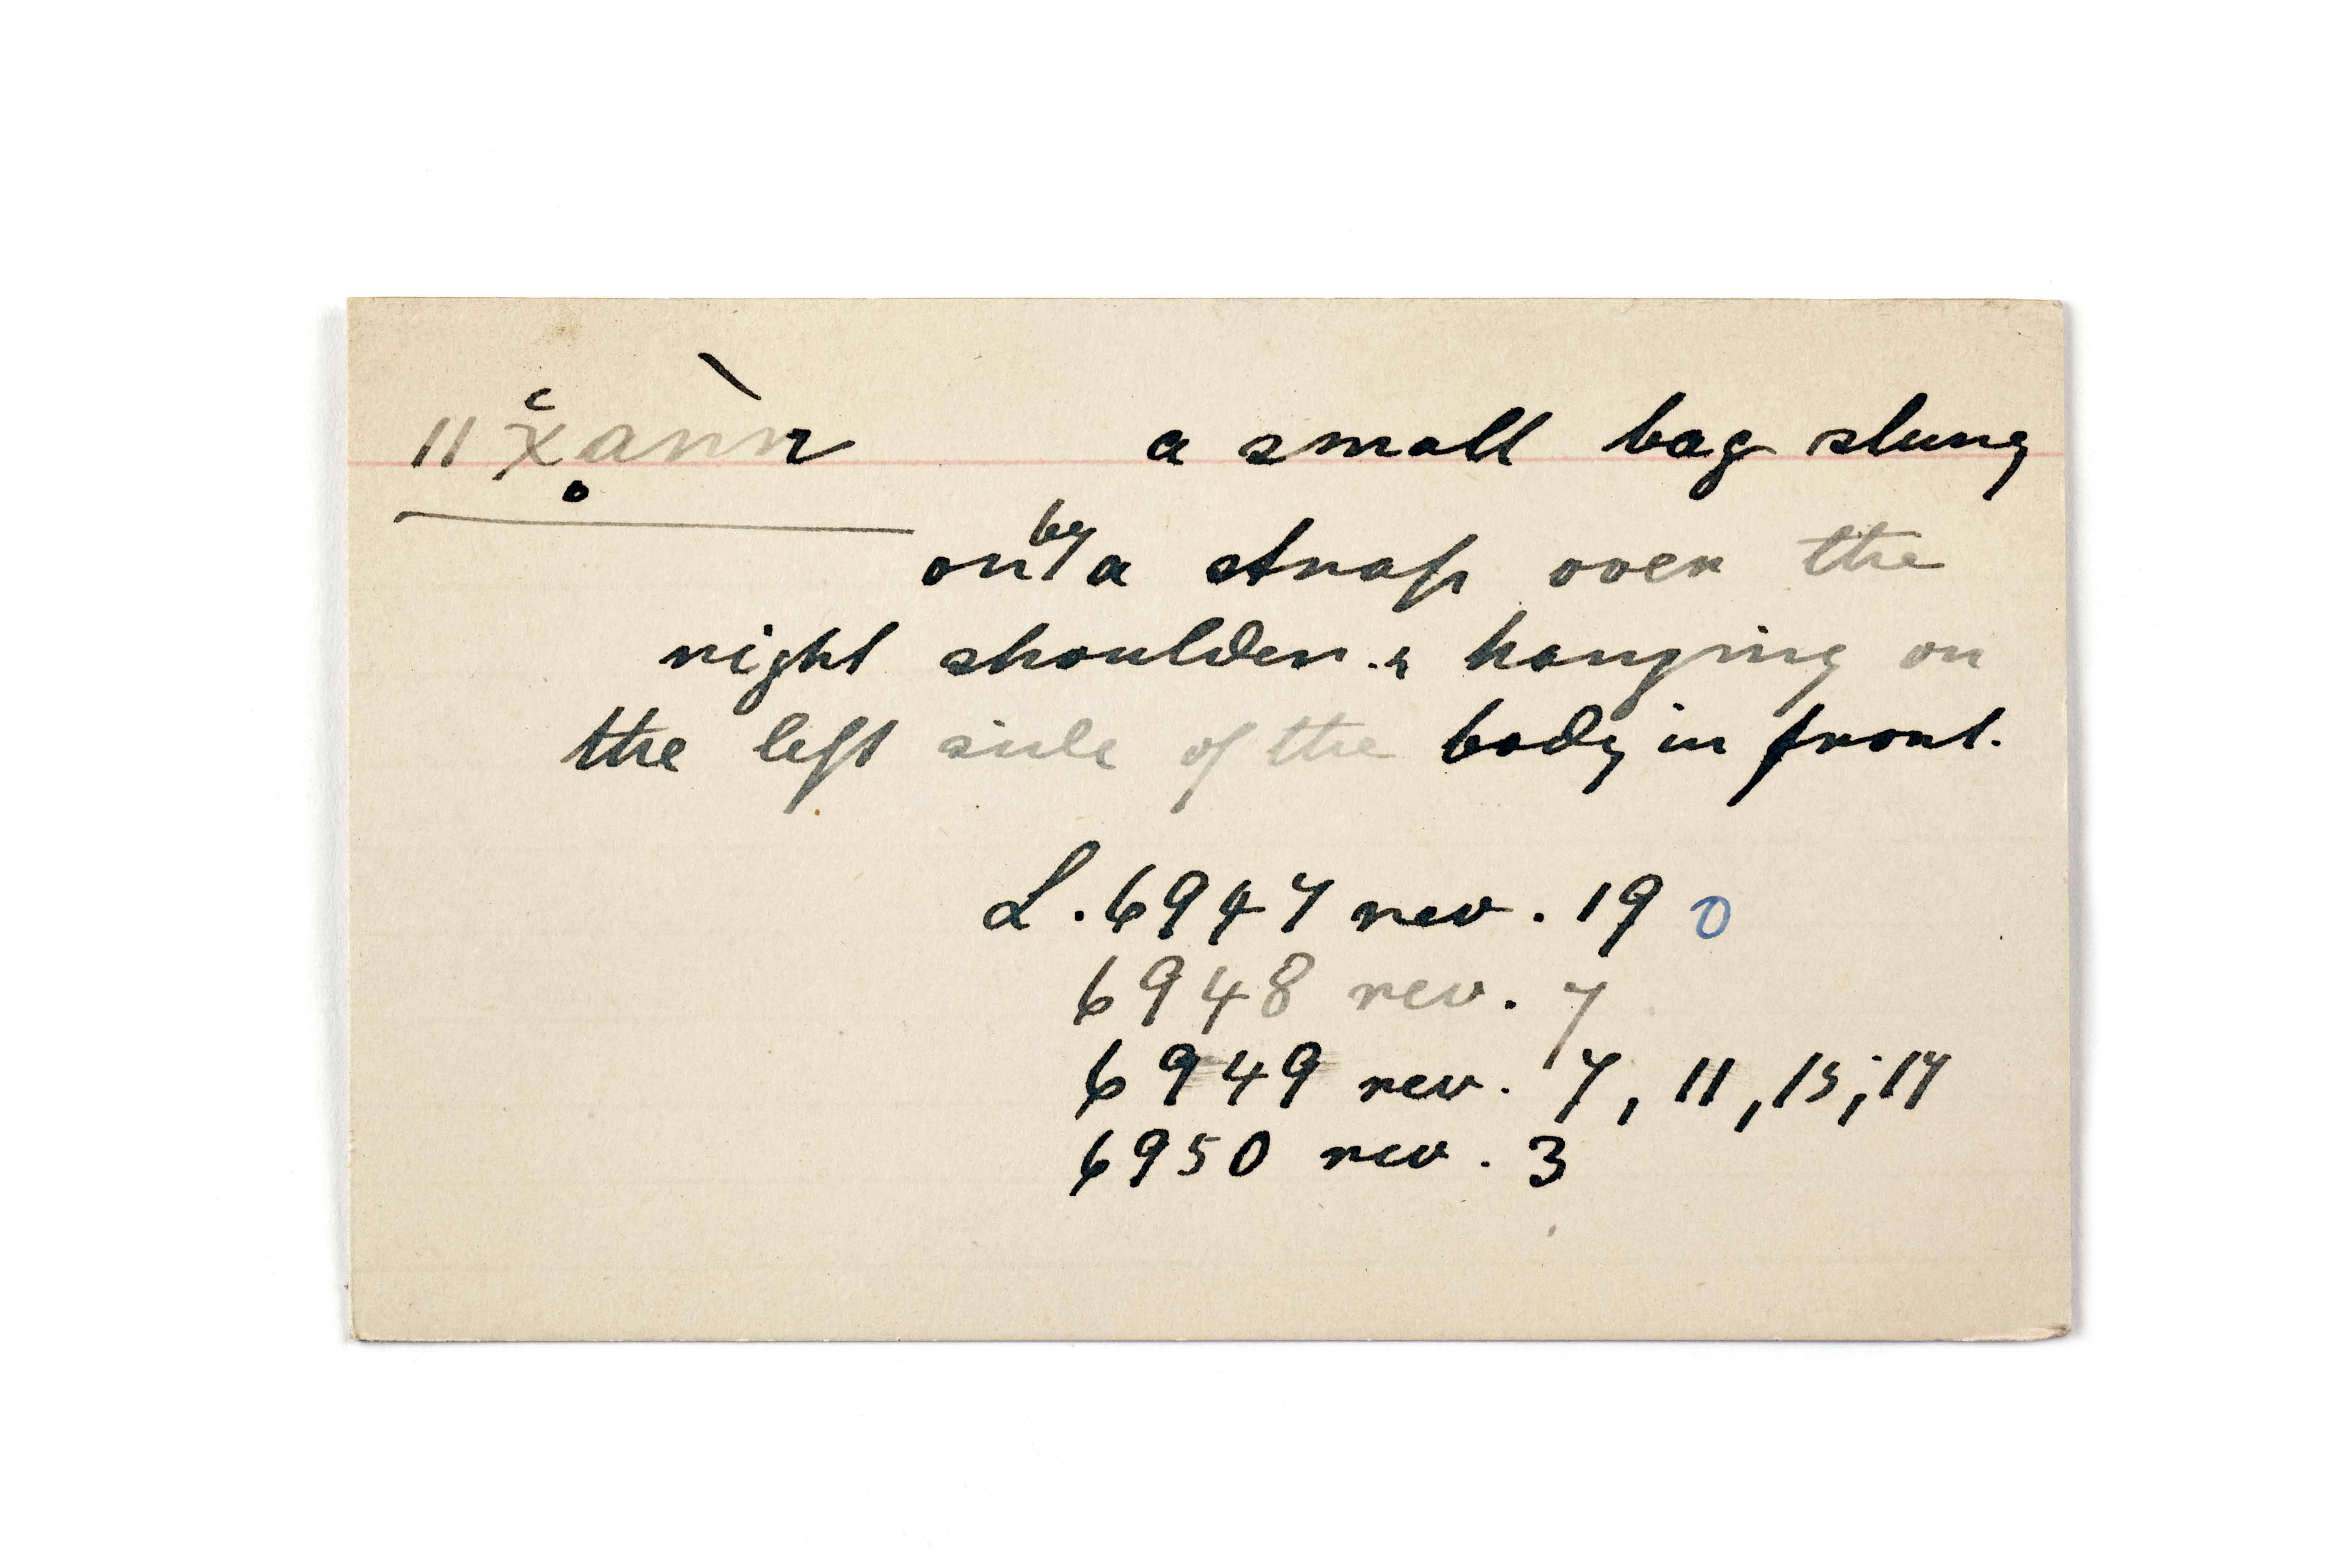 ǁχ̆ạnǹ a small bag slung
on by a strap over the
right shoulder & hanging on
the left side of the body in front.
L. 6947 rev. 19 0
6948 rev. 7
6949 rev. 7, 11, 15, 17
6950 rev. 3